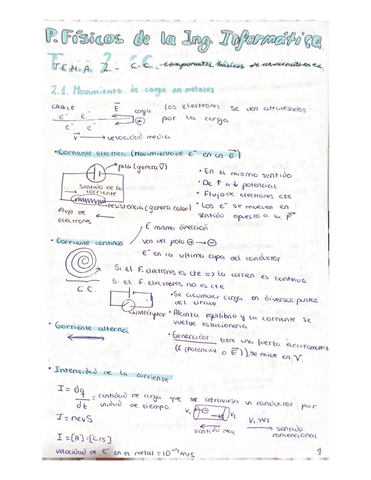 P. Físicos de la Ing. Informática
TEMA 2 - C.C. componentes básicos de circuitos en cc
2.1. Movimiento de carga en metales
CABLE E carga
e⁻ e⁻
e⁻ e⁻
V → velocidad media
Los electrones se ven atravesados
por la carga
• Corriente eléctrica (Movimiento de e⁻ en un E)
pila (genera V)
Sentido de la
corriente
resistencia (genera calor)
Flujo de
electrones
• En el mismo sentido
• De ↑ a ↓ potencial
• Flujo de electrones cte
• Los e⁻ se mueven en
sentido opuesto a la F
• Corriente continua
C.C.
E misma dirección
van del polo ⊕ → ⊖
e⁻ en la ultima capa del conductor
Si el F. electrones es cte => la corrien. es continua
Si el F. electrones no es cte
interruptor
• Se acumular carga en diversos puntos
del circuito
• Alcanta equilibrio y la corriente se
vuelve estacionaria
• Corriente alterna
• Generador:
(E (potencial o E)), se mide en V.
• Intensidad de la corriente
I = dq/dt = cantidad de carga que se atraviesa un conductor por
unidad de tiempo.
I = nevS
V₁ V₂
sentido real
V₁ > V₂
sentido
convencional
I = [A] = [C/S]
velocidad de e⁻ en el metal = 10⁻⁴ m/s
1